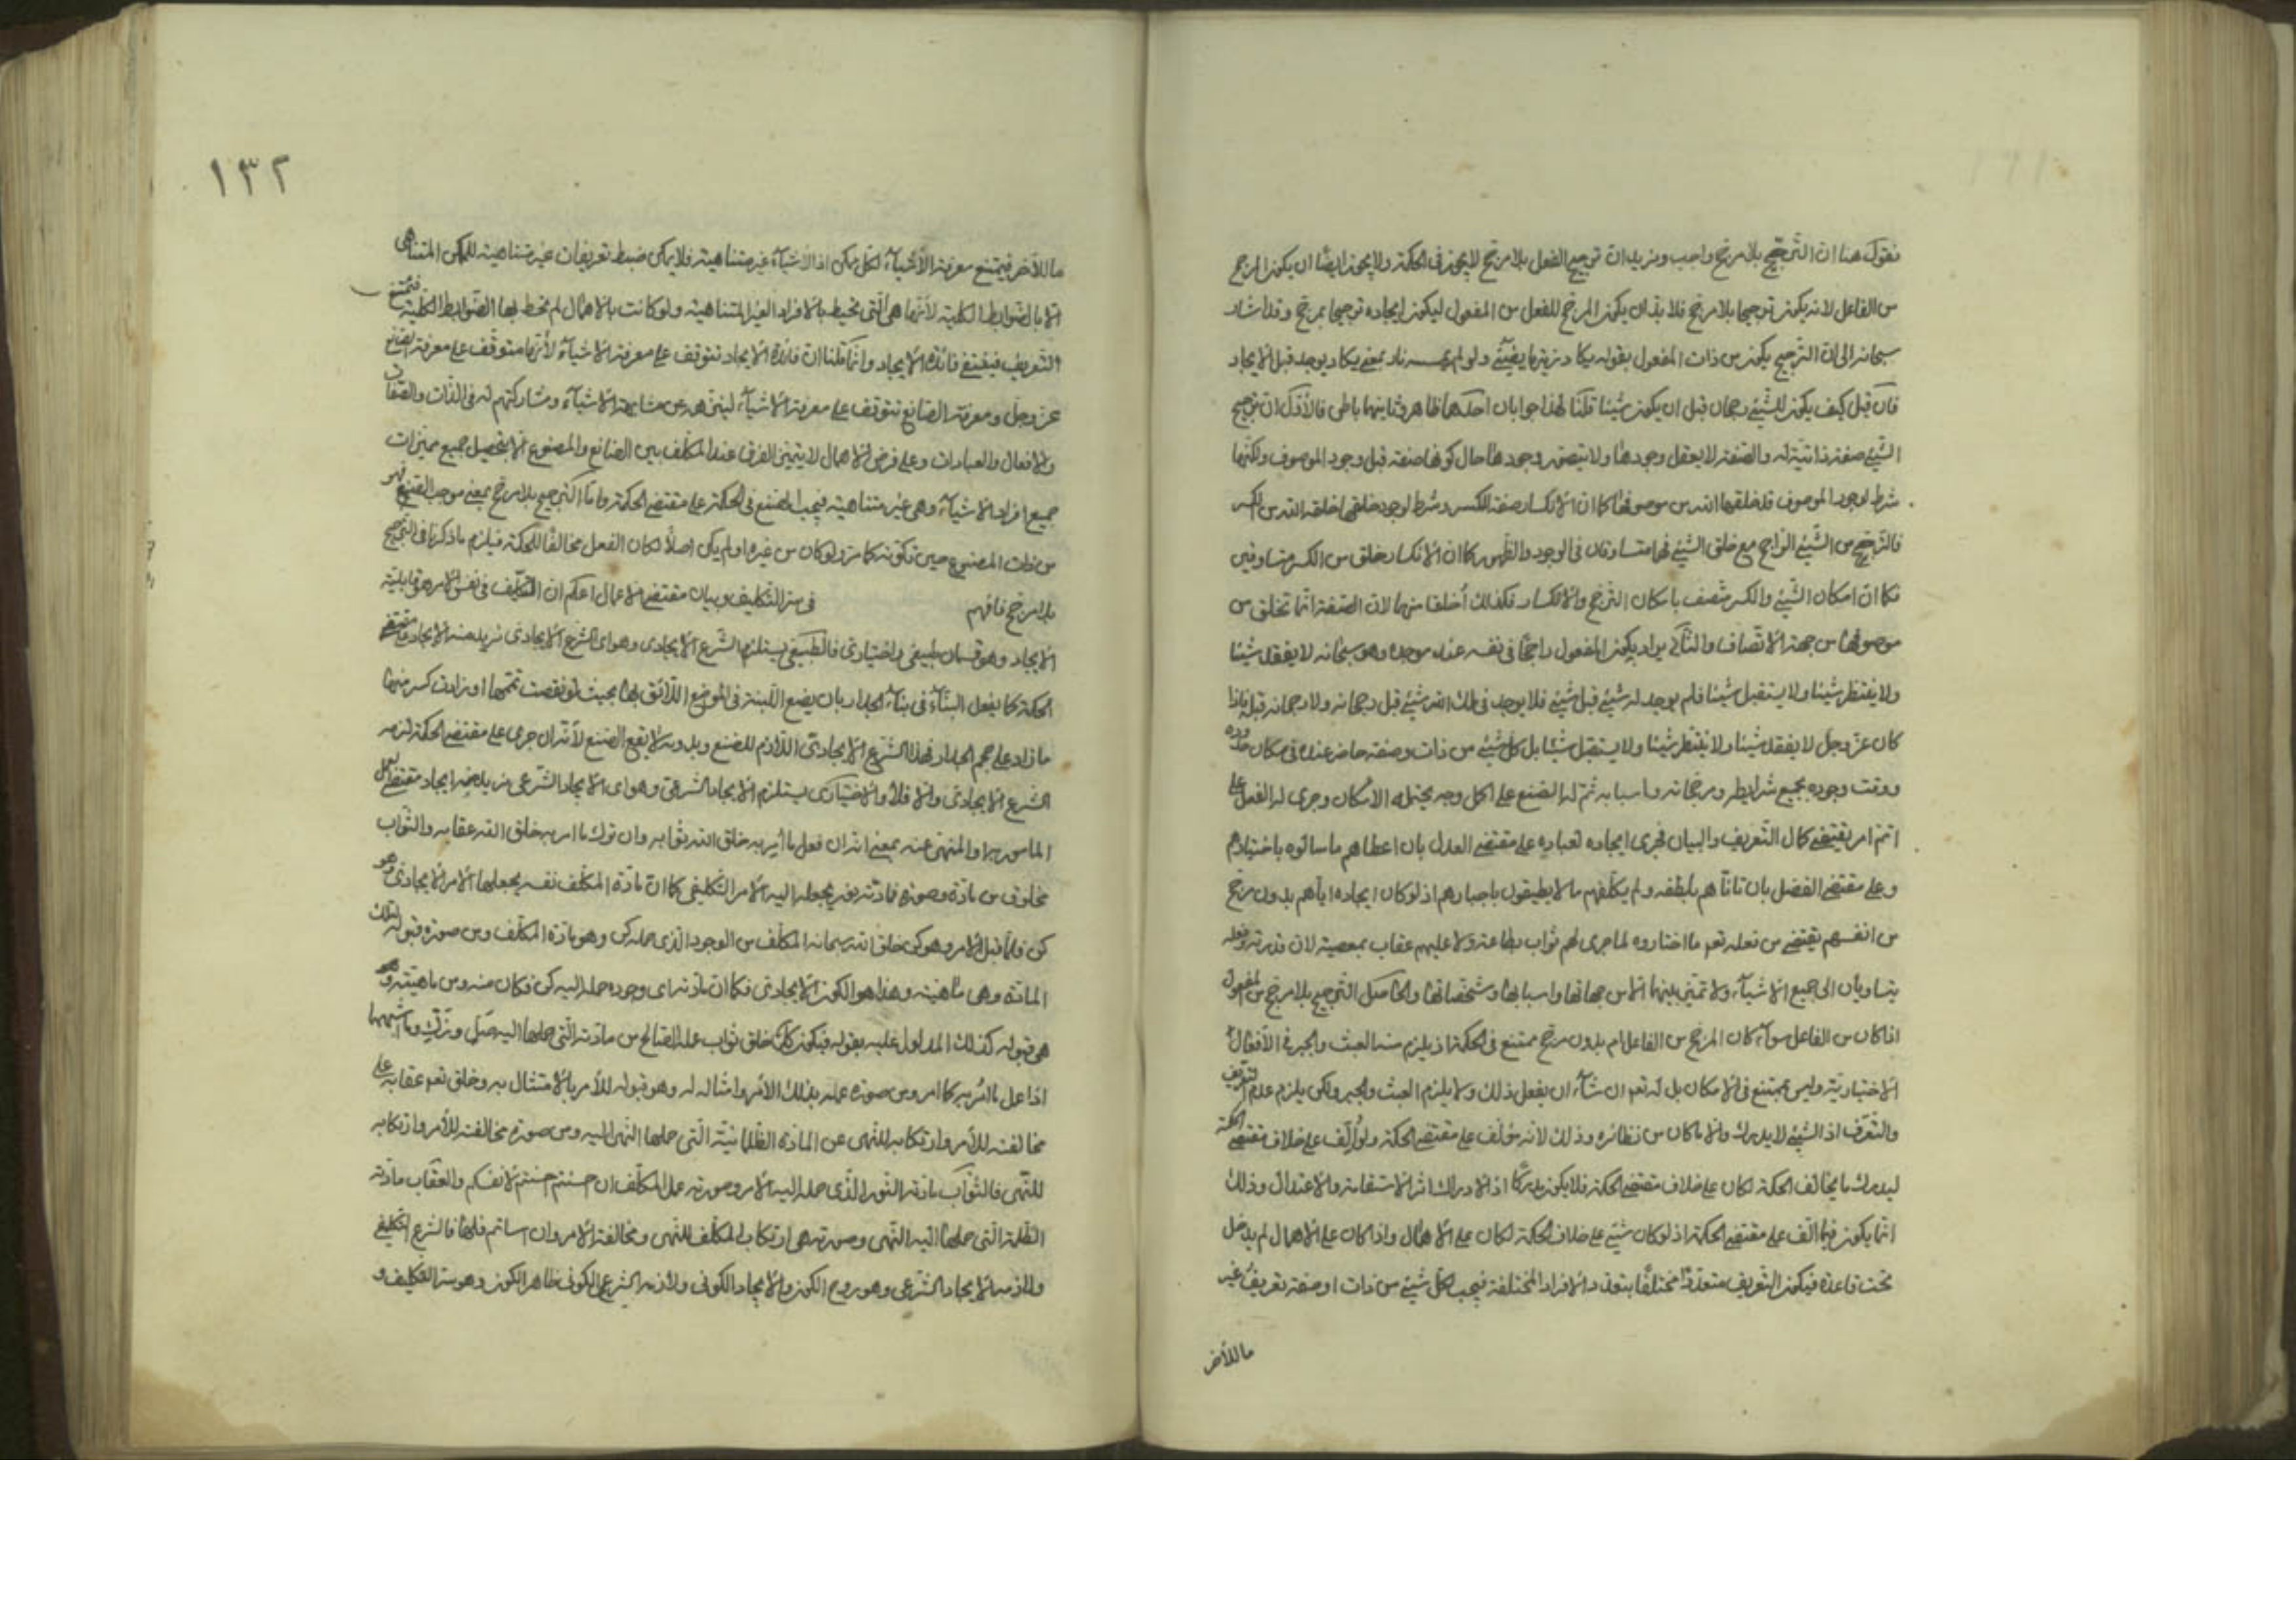 فنقول هنا ان الترجيح بلا مرجح واجب ونريد ان ترجيح الفعل بلا مرجح لا يجوز في الحكمة ولا يجوز ايضا ان يكون المرجح
من الفاعل لانه يكون ترجيحا بلا مرجح فلا بد ان يكون المرجح للفعل من المفعول ليكون ايجاده ترجيحا بمرجح وقد اشار
سبحانه الى ان الترجيح يكون من ذات المفعول بقوله يكاد زيتها يضيئ ولو لم تمسسه نار بمعنى يكاد يوجد قبل الايجاد
فان قيل كيف يكون للشيئ رجحان قبل ان يكون شيئا قلنا لهذا جوابان احدهما ظاهر وثانيهما باطن فالاول ان ترجيح
الشيئ صفة ذاتية له والصفة لا يعقل وجودها ولا يتصور وجودها حال كونها صفة قبل وجود الموصوف ولكنها
شرط لوجود الموصوف فلهذا خلقها الله من موصوفها كما ان الانكسار صفة الكسر وشرط لوجوده خلقها خلقه الله من الكسر
فالترجيح من الشيئ الراجح مع خلق الشيئ فهما متساوقان في الوجود والظهور كما ان الانكسار خلق من الكسر متساوقين
فكما ان امكان الشيئ والكسر متصف بامكان الترجح والانكسار فكذلك اخلقا منهما لان الصفة انما تخلق من
موصوفها من جهة الاتصاف والثاني يراد بكون المفعول راجحا في نفسه عند موجده وهو سبحانه لا يفقد شيئا
ولا ينتظر شيئا ولا يستقبل شيئا فلم يوجد له شيئ قبل شيئ فلا يوجد في ملك الله شيئ قبل رجحانه ولا رجحانه قبله فاذا
كان عز وجل لا يفقد شيئا ولا ينتظر شيئا ولا يستقبل شيئا بل كل شيئ من ذات وصفة حاضر عنده في مكان حدوده
ووقت وجوده بجميع شرايطه ومرجحاته واسبابه ثم له الصنع على اكمل وجه يحتمله الامكان وجرى له الفعل على
اتم امر يقتضي كمال التعريف والبيان فجرى ايجاده لعباده على مقتضى العدل بان اعطاهم ما سألوه باختيارهم
وعلى مقتضى الفضل بان تأتاهم بلطفه ولم يكلفهم ما لا يطيقون باجبارهم اذ لو كان ايجاده اياهم بدون مرجح
من انفسهم يقتضي من فعله تعم ما اختاروه لما جرى لهم ثواب بطاعة ولا عليهم عقاب بمعصية لان قدرته وفعله
يتساويان الى جميع الاشياء ولا تمييز بينهما الا من جهاتها واسبابها ومشخصاتها والحاصل الترجيح بلا مرجح من المفعول
اذا كان من الفاعل سواء كان المرجح من الفاعل ام بدون مرجح ممتنع في الحكمة اذ يلزم منه العبث والجبر في الافعال
الاختيارية وليس بممتنع في الامكان بل له تعم ان شاء ان يفعل ذلك ولا يلزم العبث والجبر ولكن يلزم عدم التعريف
والتعرف اذ الشيئ لا يدرك الا ما كان من نظائره وذلك لانه مؤلف على مقتضى الحكمة ولو الف على خلاف مقتضى الحكمة
ليدرك ما يخالف الحكمة لكان على خلاف مقتضى الحكمة فلا يكون مدركا اذ الادراك اثر الاستقامة والاعتدال وذلك
انما يكون فيما الف على مقتضى الحكمة اذ لو كان شيئ على خلاف الحكمة لكان على الاهمال واذا كان على الاهمال لم يدخل
تحت قاعدة فيكون التعريف متعددا مختلفا بتعدد الافراد المختلفة فيجب لكل شيئ من ذات او صفة تعريف غير
ما للآخر
١٣٢
ما للآخر فيمتنع معرفة الاشياء لكل ممكن اذ الاشياء غير متناهية فلا يمكن ضبط تعريفات غير متناهية للممكن المتناهي
الا بالضوابط الكلية لانها هي التي تحيط بالافراد الغير المتناهية ولو كانت بالاهمال لم تحط بها الضوابط الكلية فيمتنع
التعريف فينتفي فائدة الايجاد وانما قلنا ان فائدة الايجاد تتوقف على معرفة الاشياء لانها متوقف على معرفة الصانع
عز وجل ومعرفة الصانع تتوقف على معرفة الاشياء لينزهه عن مشابهة الاشياء ومشاركتهم له في الذات والصفات
والافعال والعبادات وعلى فرض الاهمال لا يتبين الفرق عند المكلف بين الصانع والمصنوع الا بتحصيل جميع مميزات
جميع افراد الاشياء وهي غير متناهية فيجب الصنع في الحكمة على مقتضى الحكمة واما الترجيح بلا مرجح بمعنى موجب الصنع فهو
من ذات المصنوع حين تكونه كما مر ولو كان من غيره او لم يكن اصلا لكان الفعل مخالفا للحكمة فيلزم ما ذكرنا في الترجيح
بلا مرجح فافهم في سر التكليف وبيان مقتضى الاعمال اعلم ان التكليف في نفس الامر هو قابلية
الايجاد وهو قسمان طبيعي واختياري فالطبيعي يستلزم الشرع الايجادي وهو اى الشرع الايجادي نريد منه الايجاد على مقتضى
الحكمة كما يفعل البناء في بناء الجدار بان يضع اللبنة في الموضع اللائق بها بحيث لو نقصت تممها او زادت كسر منها
ما زاد على حجم الجدار فهذا الشرع الايجادي اللازم للصنع وبدونه لا يقع الصنع لانه ان جرى على مقتضى الحكمة لزمه
الشرع الايجادي والا فلا والاختياري يستلزم الايجاد الشرعي وهو اى الايجاد الشرعي نريد منه ايجاد مقتضى العمل
المأمور به والمنهى عنه بمعنى انه ان فعل ما امر به خلق الله ثوابه وان ترك ما امر به خلق الله عقابه والثواب
مخلوق من مادة وصورة فمادته نور يحمله اليه الامر التكليفي كما ان مادة المكلف نفسه يحملها الامر الايجادي وهو
كن فلما قبل الامر وهو كن خلق الله سبحانه المكلف من الوجود الذي حمله كن وهو مادة المكلف ومن صورة قبوله لتلك
المادة وهى ماهيته وهذا هو الكون الايجادي فكما ان مادته اى وجوده حمله اليه كن فكان منه ومن ماهيته وهو
هي قبوله كذلك المدلول عليه بقوله فيكون كذلك خلق ثواب عمله الصالح من مادته التي حملها اليه صل وزك وما اشبههما
اذا عمل ما امر به كما امر ومن صورة عمله بذلك الامر وامتثاله له وهو قبوله للامر بالامتثال به وخلق تعم عقابه على
مخالفته للامر وارتكابه للنهى عن المادة الظلمانية التي حملها النهى اليه ومن صورة مخالفته للامر وارتكابه
للنهى فالثواب مادته النور الذي حمله اليه الامر وصورته عمل المكلف ان احسنتم احسنتم لانفسكم والعقاب مادته
الظلمة التي حملها اليه النهى وصورته هي ارتكاب المكلف للنهى ومخالفة الامر وان اسأتم فلها فالشرع التكليفي
ولازمه الايجاد الشرعي وهو روح الكون والايجاد الكوني ولازمه الشرع الكوني ظاهر الكون وهو سر التكليف و